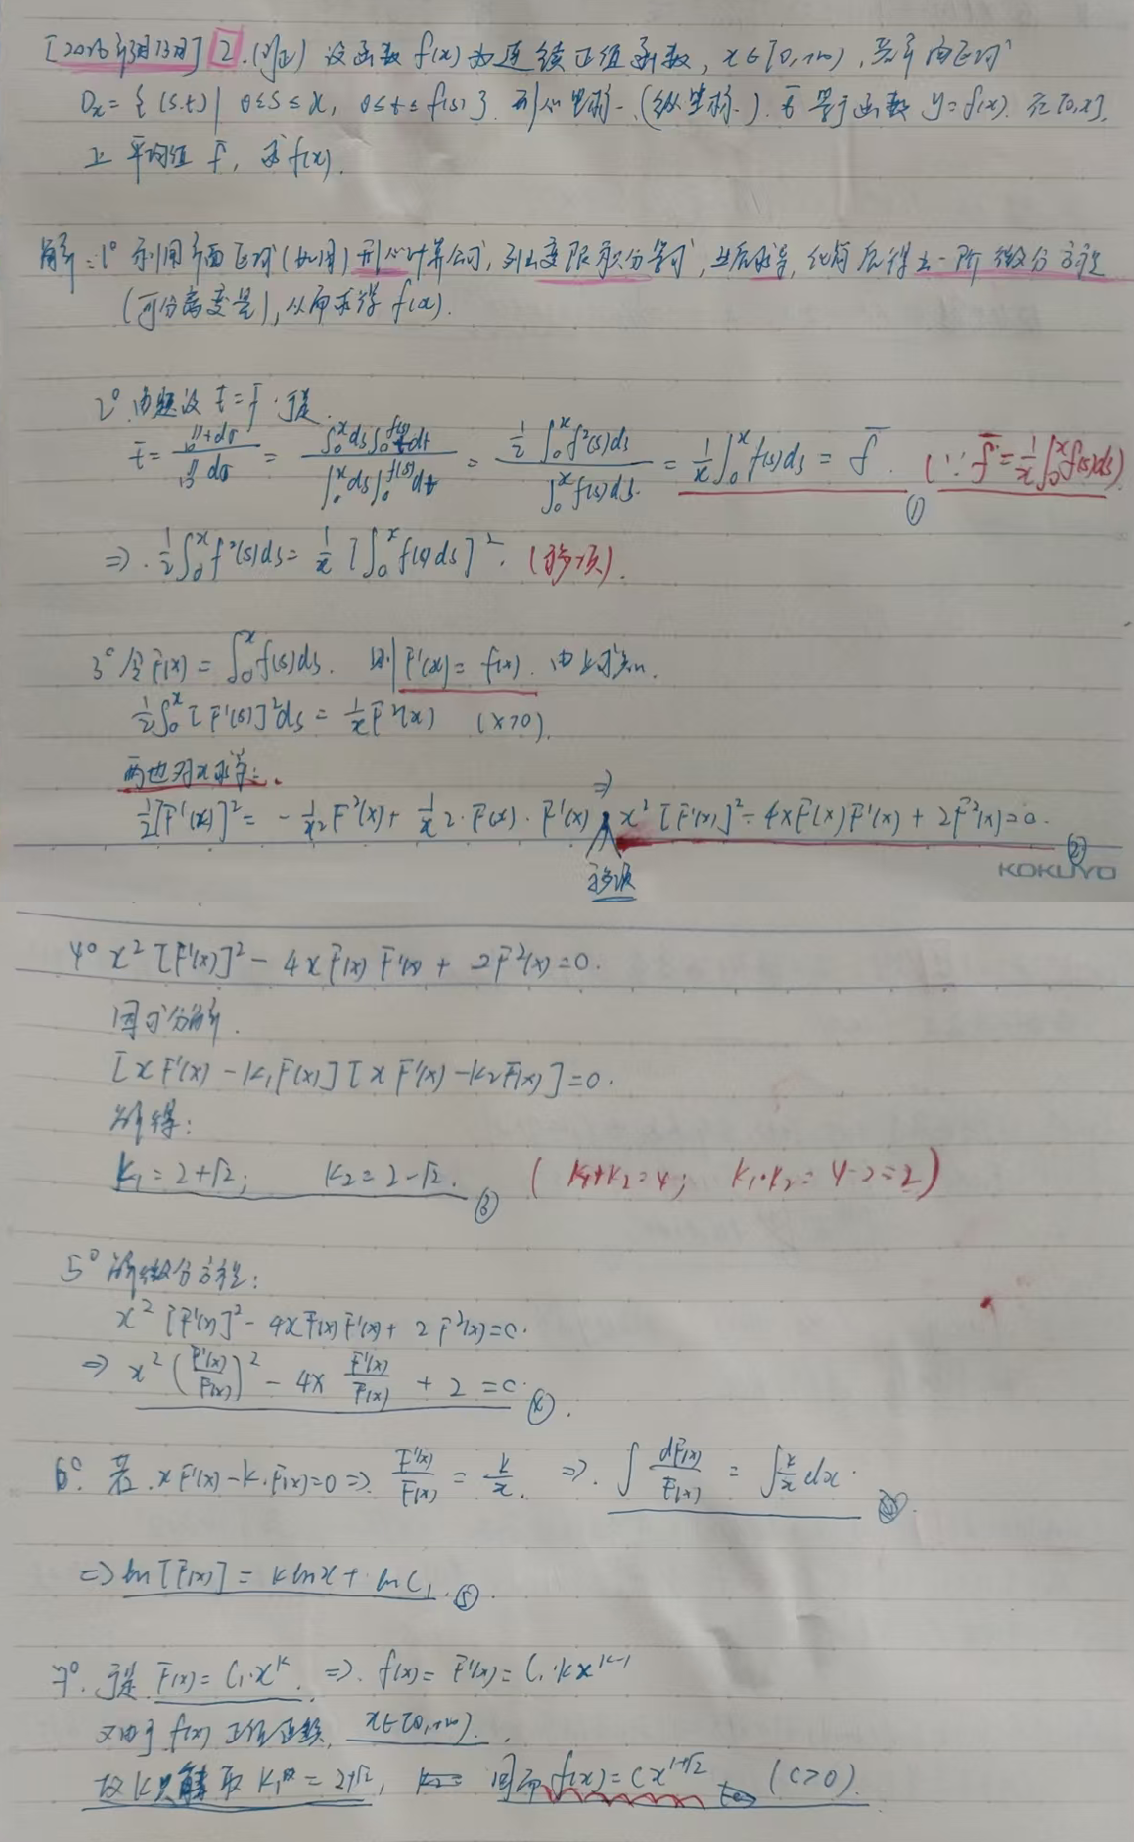 [2026年3月13日] 2.(例2) 设函数 f(x) 为连续正值函数, x∈[0,+∞), 若平面区域
Dx={(s,t)| 0≤s≤x, 0≤t≤f(s)} 形心坐标 (纵坐标) 等于函数 y=f(x) 在[0,x]
上平均值 f̄, 求f(x).
解:1° 利用平面区域(如图)形心计算公式,列出变限积分等式,然后求导,化简后得出一阶微分方程
(可分离变量),从而求得 f(x).
2° 由题设 t̄=f̄ 于是
t̄ = ∬t dσ / ∬dσ = ∫₀ˣds∫₀^{f(s)} t dt / ∫₀ˣds∫₀^{f(s)}dt = ½∫₀ˣf²(s)ds / ∫₀ˣf(s)ds = 1/x ∫₀ˣf(s)ds = f̄. ① (∵ f̄=1/x ∫₀ˣf(s)ds)
⇒ ½∫₀ˣf²(s)ds = 1/x [∫₀ˣf(s)ds]². (移项).
3° 令F(x) = ∫₀ˣf(s)ds. 则F'(x)=f(x). 由上式知.
½∫₀ˣ[F'(s)]²ds = 1/x F²(x) (x>0).
两边对x求导:
½[F'(x)]² = -1/x² F²(x) + 1/x 2·F(x)·F'(x) ⇒ x²[F'(x)]² - 4xF(x)F'(x) + 2F²(x)=0. ②
移项
KOKUYO
4° x²[F'(x)]² - 4xF(x)F'(x) + 2F²(x)=0.
因式分解.
[xF'(x) - k₁F(x)][xF'(x) - k₂F(x)]=0.
解得:
k₁=2+√2; k₂=2-√2. ③ (k₁+k₂=4; k₁·k₂=4-2=2)
5° 解微分方程:
x²[F'(x)]² - 4xF(x)F'(x) + 2F²(x)=0.
⇒ x²(F'(x)/F(x))² - 4x F'(x)/F(x) + 2=0. ④.
6° 若 xF'(x) - k·F(x)=0 ⇒ F'(x)/F(x) = k/x. ⇒ ∫dF(x)/F(x) = ∫k/x dx.
⇒ ln[F(x)] = klnx + lnC₁. ⑤
7°. 于是 F(x)=C₁·x^k. ⇒ f(x)=F'(x)=C₁·kx^{k-1}
又由于 f(x) 正值函数, x∈[0,+∞).
故k只能取 k₁=2+√2, 因而 f(x)=Cx^{1+√2} (C>0).